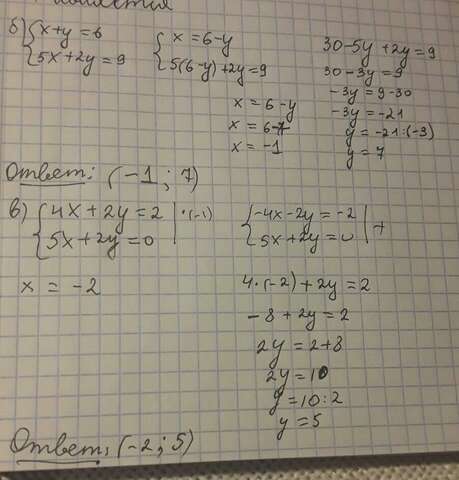 б) { x+y=6
5x+2y=9
{ x=6-y
5(6-y)+2y=9
x=6-y
x=6-7
x=-1
30-5y+2y=9
30-3y=9
-3y=9-30
-3y=-21
y=-21:(-3)
y=7
Ответ: (-1; 7)
в) { 4x+2y=2 | ·(-1)
5x+2y=0
{ -4x-2y=-2 | +
5x+2y=0
x = -2
4·(-2)+2y=2
-8+2y=2
2y=2+8
2y=10
y=10:2
y=5
Ответ: (-2; 5)